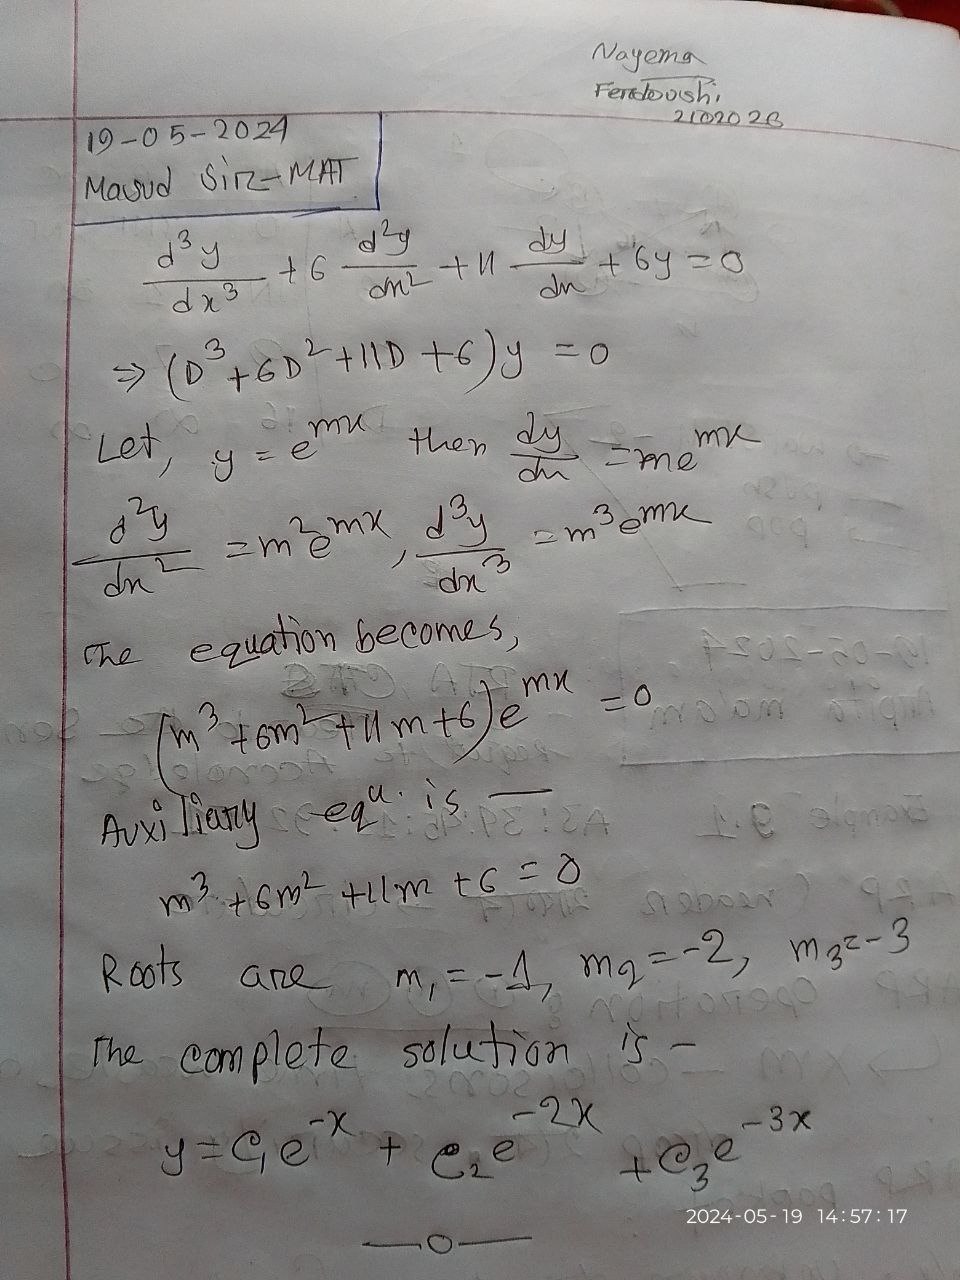 Nayema
Ferdoushi
2102028
19-05-2024
Masud Sir-MAT
d³y/dx³ + 6 d²y/dx² + 11 dy/dx + 6y = 0
⇒ (D³ + 6D² + 11D + 6)y = 0
Let, y = e^mx then dy/dx = me^mx
d²y/dx² = m²e^mx, d³y/dx³ = m³e^mx
The equation becomes,
(m³ + 6m² + 11m + 6)e^mx = 0
Auxiliary equⁿ. is —
m³ + 6m² + 11m + 6 = 0
Roots are m₁ = -1, m₂ = -2, m₃ = -3
The complete solution is -
y = C₁e^-x + C₂e^-2x + C₃e^-3x
2024-05-19 14:57:17
—o—